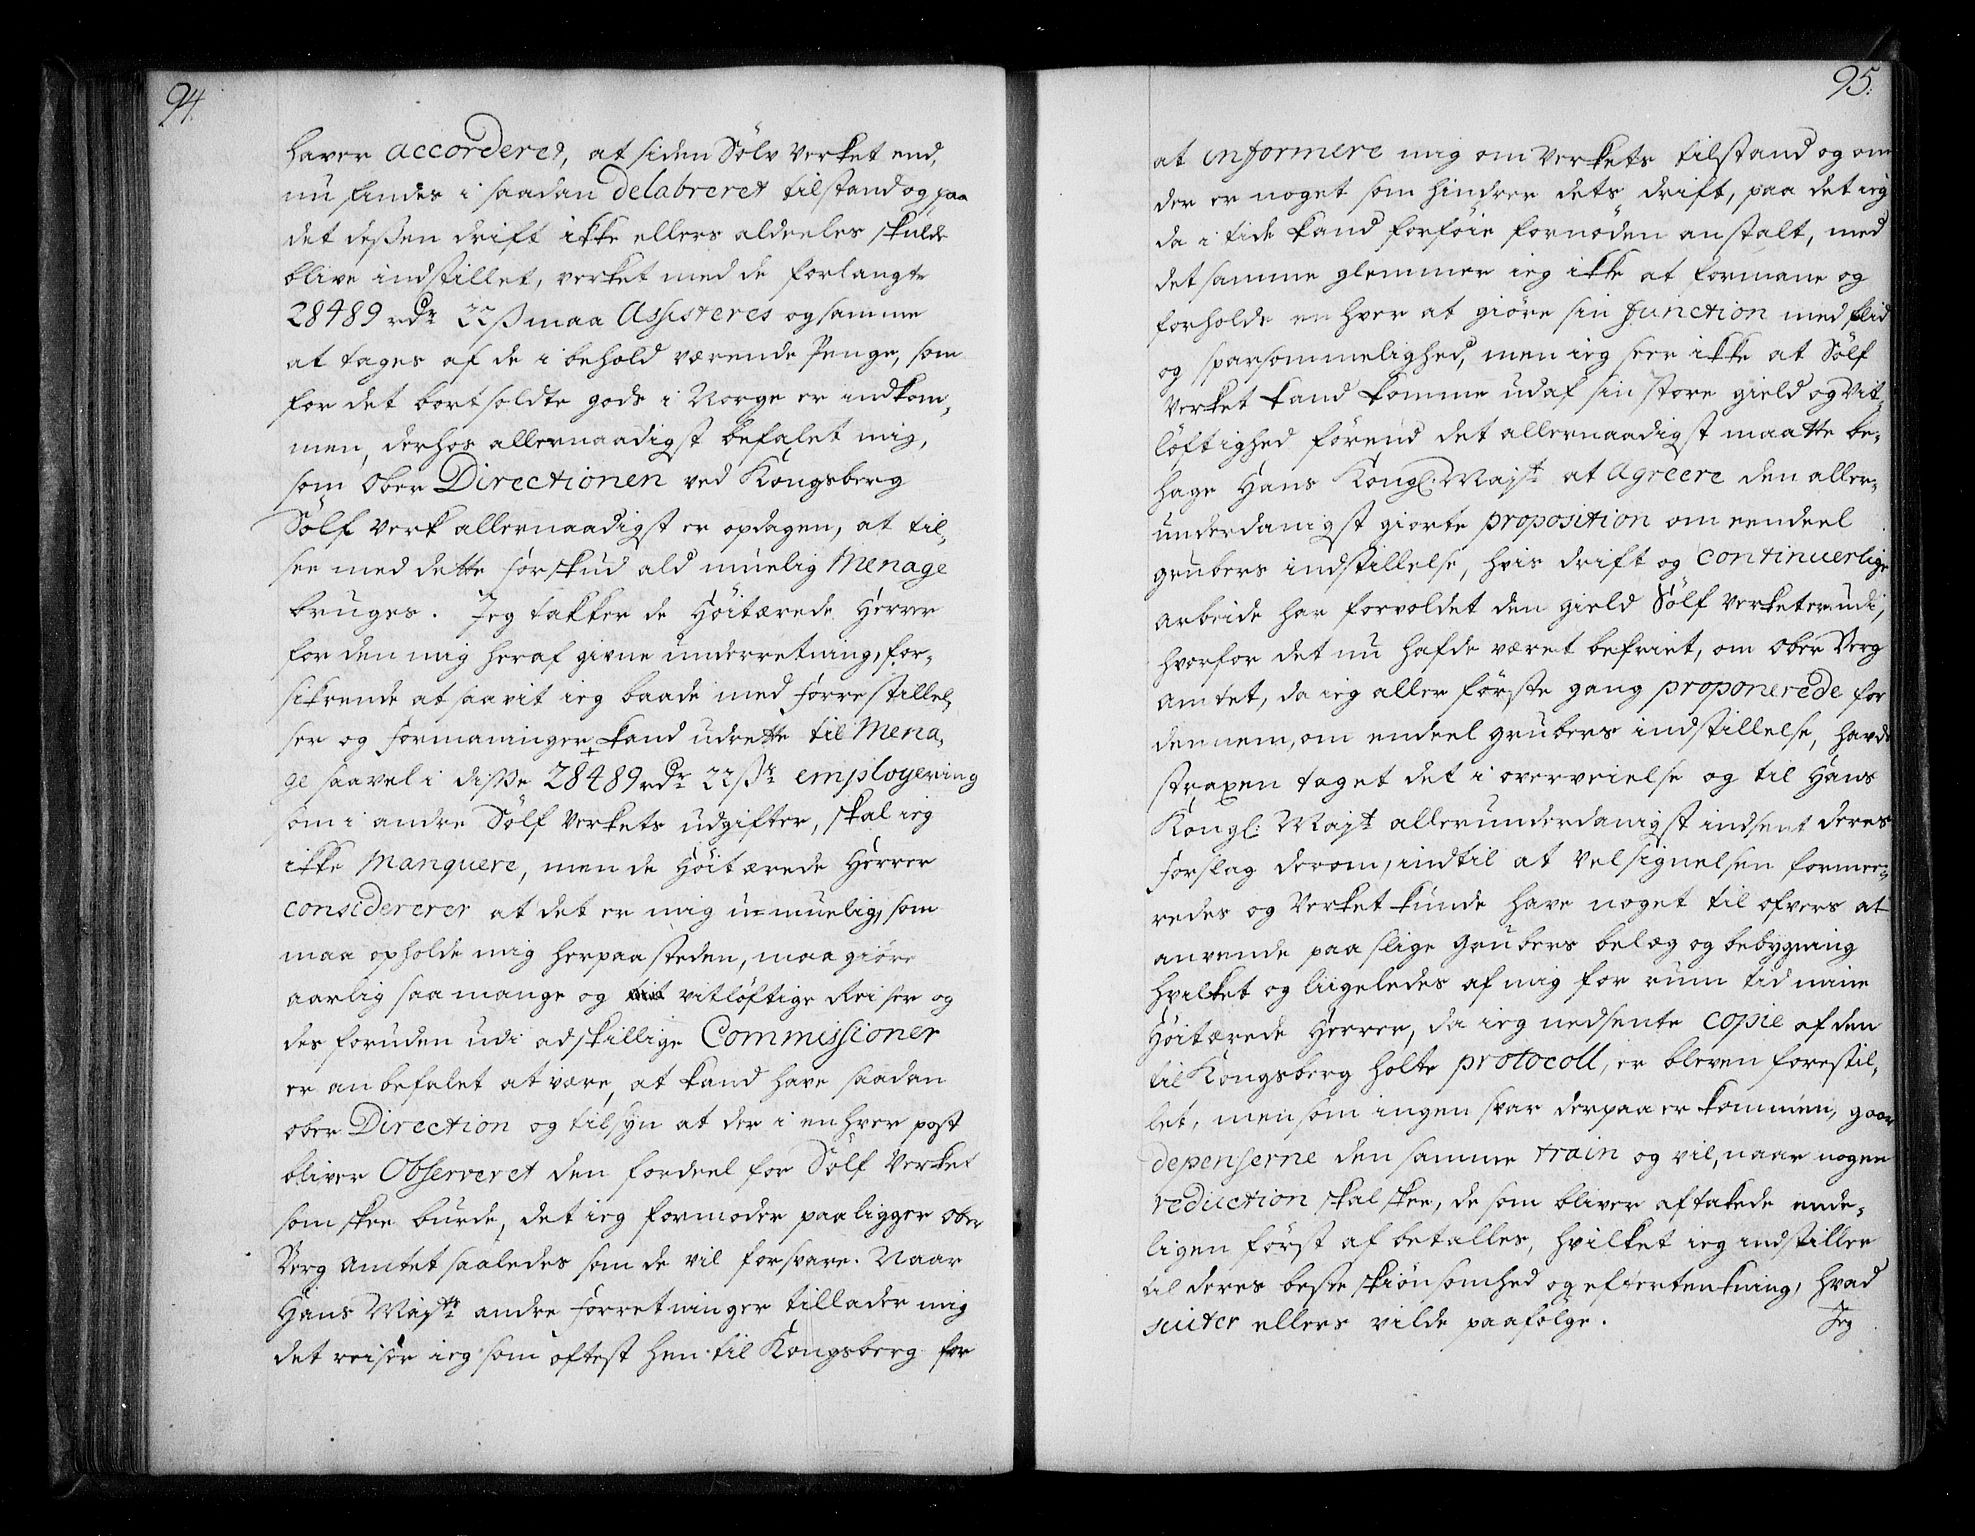 94.
haver accorderet, at siden Sölv Verket end,
nu findes i saadan delabreret tilstand og paa
det dessen drift ikke ellers aldeeles skulde
blive indstillet, verket med de forlangte
28489 rdr 22 ß maa Assisteres og samme
at tages af de i behold værende Penge, som
for det bortsoldte gods i Norge er indkom,
men, derhos allernaadigst befalet mig,
som Ober Directionen ved Kongsberg
Sölf Verk allernaadigst er opdagen, at til,
see med dette forskud ald muelig Menage
bruges. Jeg takker de Höitærede Herrer
for den mig heraf givne underretning, for-
sikrende at saavit ieg baade med forrestillel,
ser og formaninger + kand udrette til Mena,
ge saavel i disse 28489 rdr 22 ßr employering
som i andre Sölf Verkets udgifter, skal ieg
ikke Manquere, men de Höitærede Herrer
considererer at det er mig u-muelig, som
maa opholde mig her paa steden, maa giöre
aarlig saa mange og vitlöftige Reiser og
des foruden udi adskillige Commissioner
er anbefalet at være, at kand have saadan
ober Direction og tilsyn at der i en hver post
bliver Observeret den fordeel for Sölf Verket
som skee burde, det ieg formoder paaligger ober
Berg Amtet saaledes som de vil forsvare. Naar
Hans Mayts andre forretninger tillader mig
det reiser ieg som oftest hen til Kongsberg for
95.
at informere mig om Verkets tilstand og om
der er noget som hindrer dets drift, paa det ieg
da i tide kand forföie fornöden anstalt, med
det samme glemmer ieg ikke at formane og
forholde en hver at giöre sin function med flid
og sparsommelighed, men ieg seer ikke at Sölf
Verket kand komme udaf sin store gield og Vit,
löftighed förend det allernaadigst maatte be-
hage Hans Kongl: Mayt at Agreere den aller-
underdanigst giorte proposition om eendeel
grubers indstillelse, hvis drift og continuerlige
arbeide har forvoldet den gield Sölf Verket er udi,
hvorfor det nu hafde været befriet, om Ober Berg
Amtet, da ieg aller förste gang proponerede for
dennem, om endeel grubers indstillelse, havde
straxen taget det i overveielse og til Hans
Kongl: Mayt allerunderdanigst indsent deres
forslag derom, indtil at Velsignelsen formee-
redes og Verket kunde have noget til ofvers at
anvende paa slige grubers belæg og bebygning
hvilket og liigeledes af mig for rum tid mine
Höitærede Herrer, da ieg nedsente copie af den
til Kongsberg holte protocoll, er bleven forestil,
let, men som ingen svar derpaa er kommen, gaar
depenserne den samme train og vil, naar nogen
reduction skal skee, de som bliver aftakede ende-
ligen först af betalles, hvilket ieg indstiller
til deres beste skiönsomhed og eftertenkning, hvad
suiter ellers vilde paafölge.
Jeg